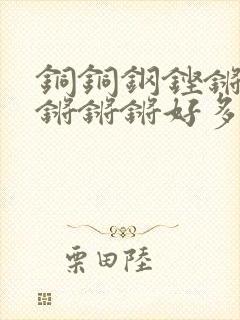 銅銅鋼鏗鏘
鏘鏘鏘好多
栗田陸